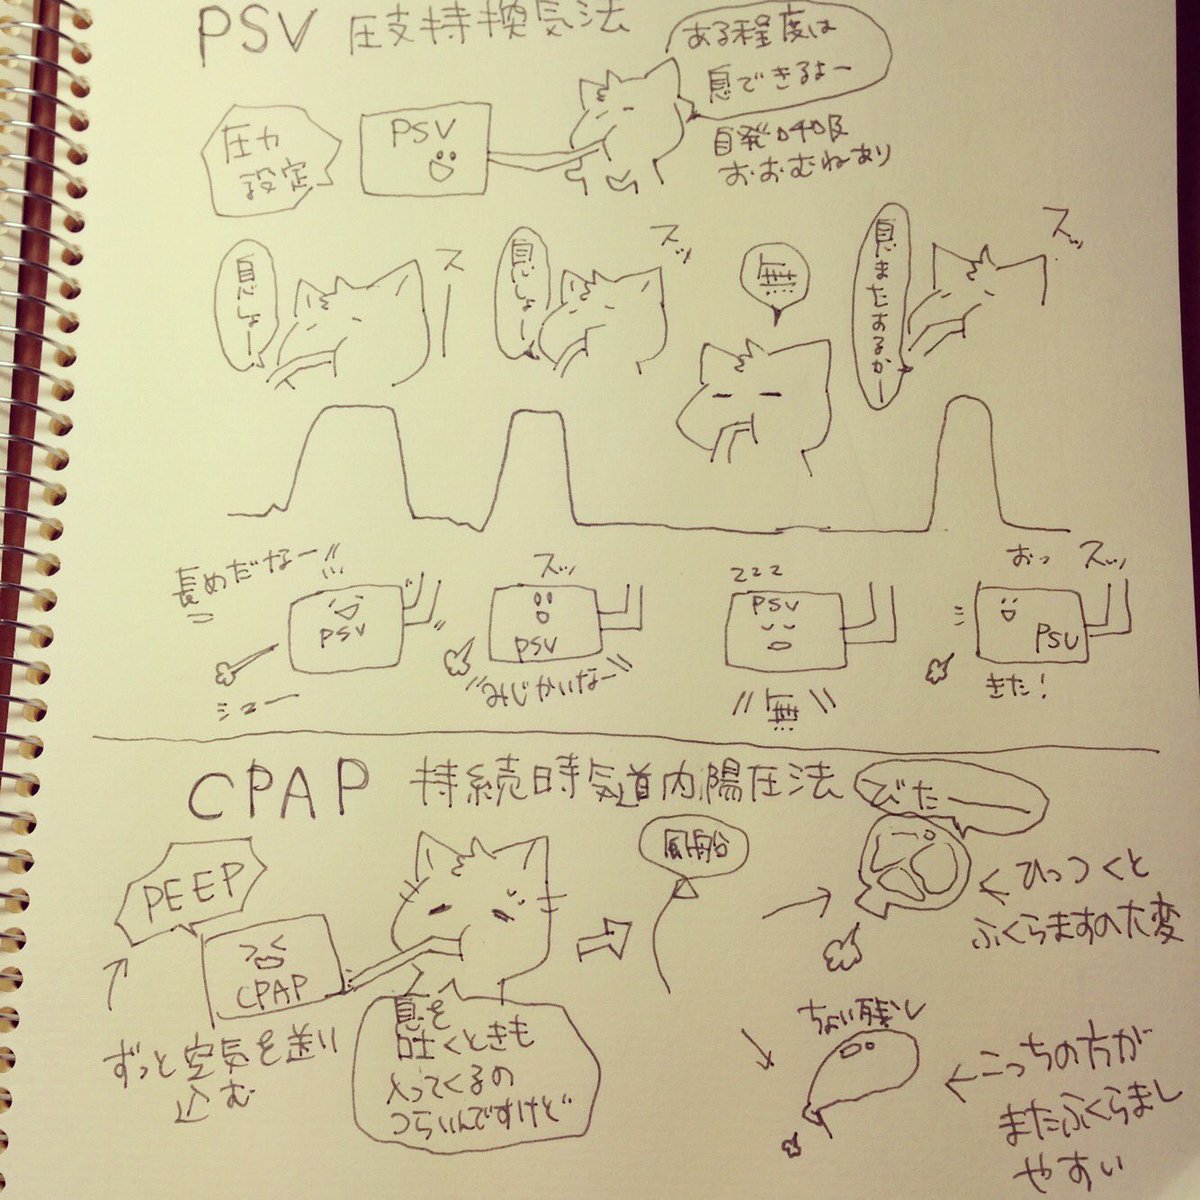 PSV 圧支持換気法
ある程度は
息できるよー
圧力
設定
PSV
自発呼吸
おおむねあり
息しよー
スー
息しよー
スッ
無
息またするかー
スッ
長めだなー
PSV
シュー
スッ
PSV
みじかいなー
zzz
PSV
無
おっ スッ
PSV
きた!
CPAP 持続時気道内陽圧法
びたー
PEEP
CPAP
ずっと空気を送り
込む
息を
吐くときも
入ってくるの
つらいんですけど
風船
ひっつくと
ふくらますの大変
ちょい残し
こっちの方が
またふくらまし
やすい